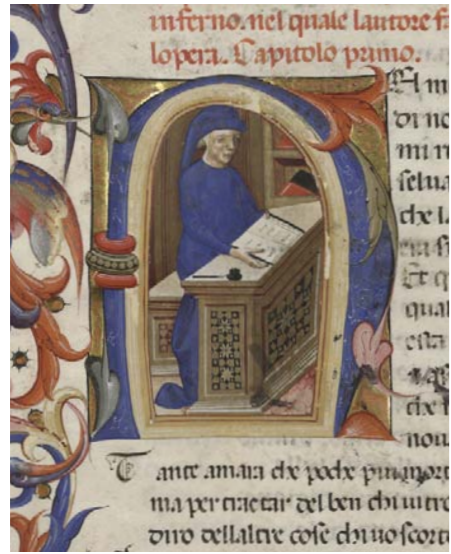 inferno. nel quale lautore f
lopera. Capitolo primo.
NEl m
di no
mi r
selua
che l
Et q
qual
che
non
Tante amara che poche piu mort
ma per tractar del ben chi ui tro
diro dellaltre cose chi uo scort